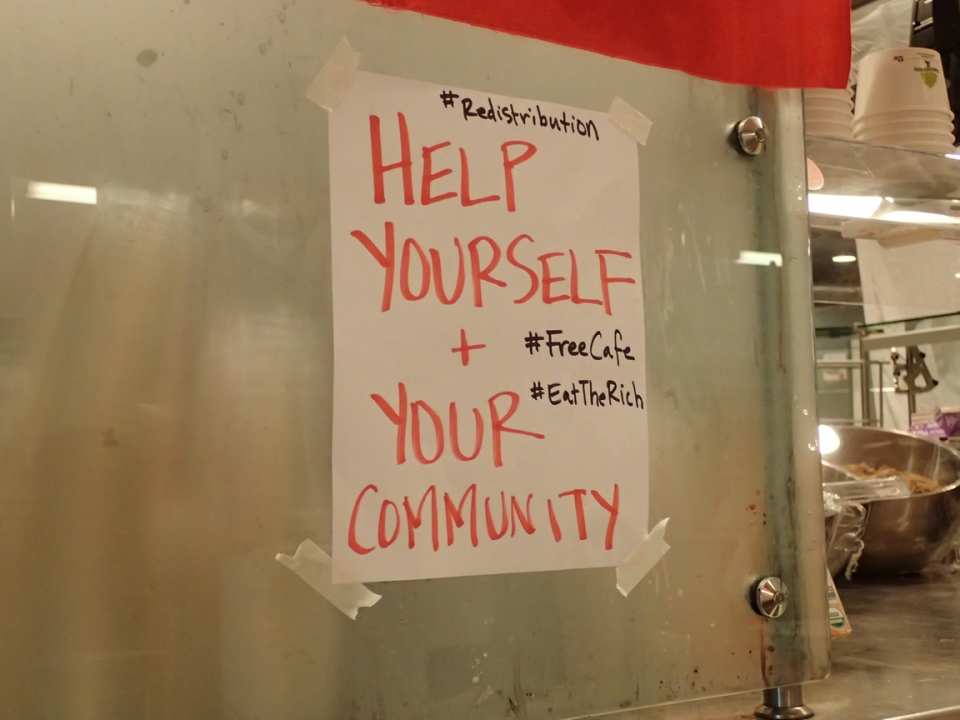 #Redistribution
HELP
YOURSELF
+
#FreeCafe
#EatTheRich
YOUR
COMMUNITY